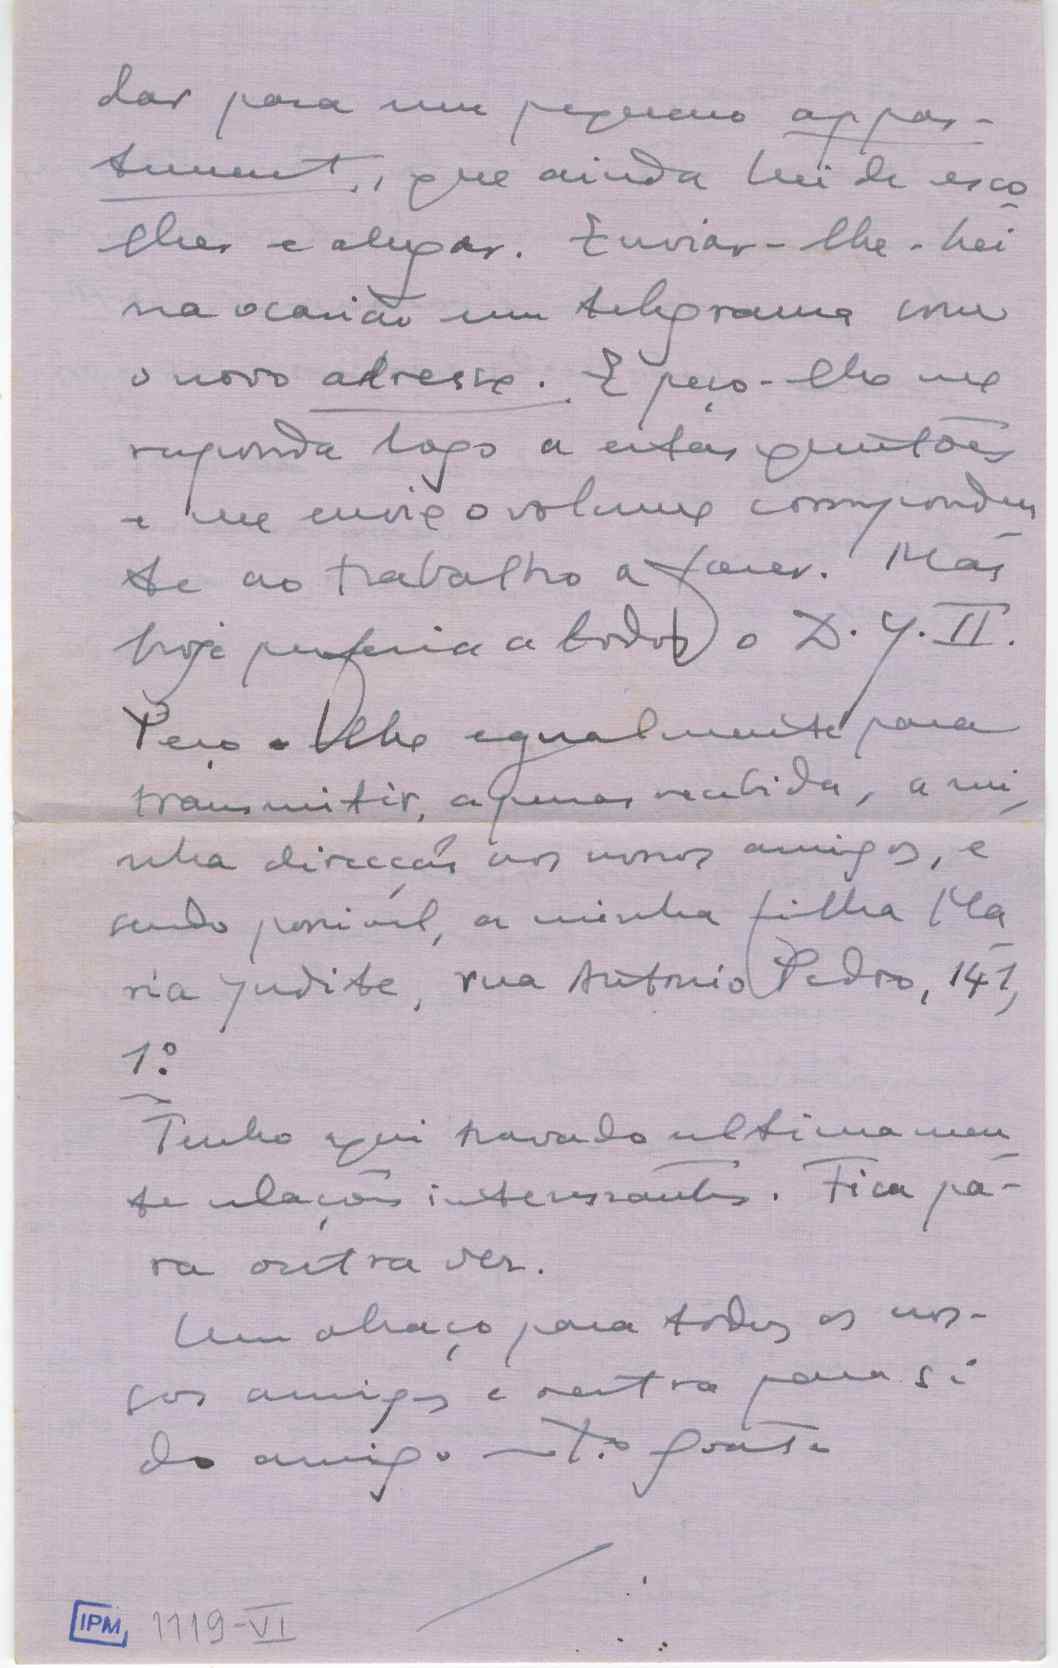 dar para um pequeno appar-
tement, que ainda hei de esco
lher e alugar. Enviar-lhe-hei
na ocasião um telegrama com
o novo adresse. E peço-lhe me
responda logo a estas questões
e me envie o volume corresponden
te ao trabalho a fazer. Mas
hoje preferia a todos o D. J. II.
Peço-lhe egualmente para
transmitir, apenas recebida, a mi
nha direcção aos nossos amigos, e
sendo possivel, a minha filha Ma
ria Judite, rua Antonio Pedro, 141,
1º.
Tenho aqui travado ultimamen
te relações interessantes. Fica pa-
ra outra vez.
Um abraço para todos os nos-
sos amigos e outro para si
do amigo mto grato
IPM 1119-VI